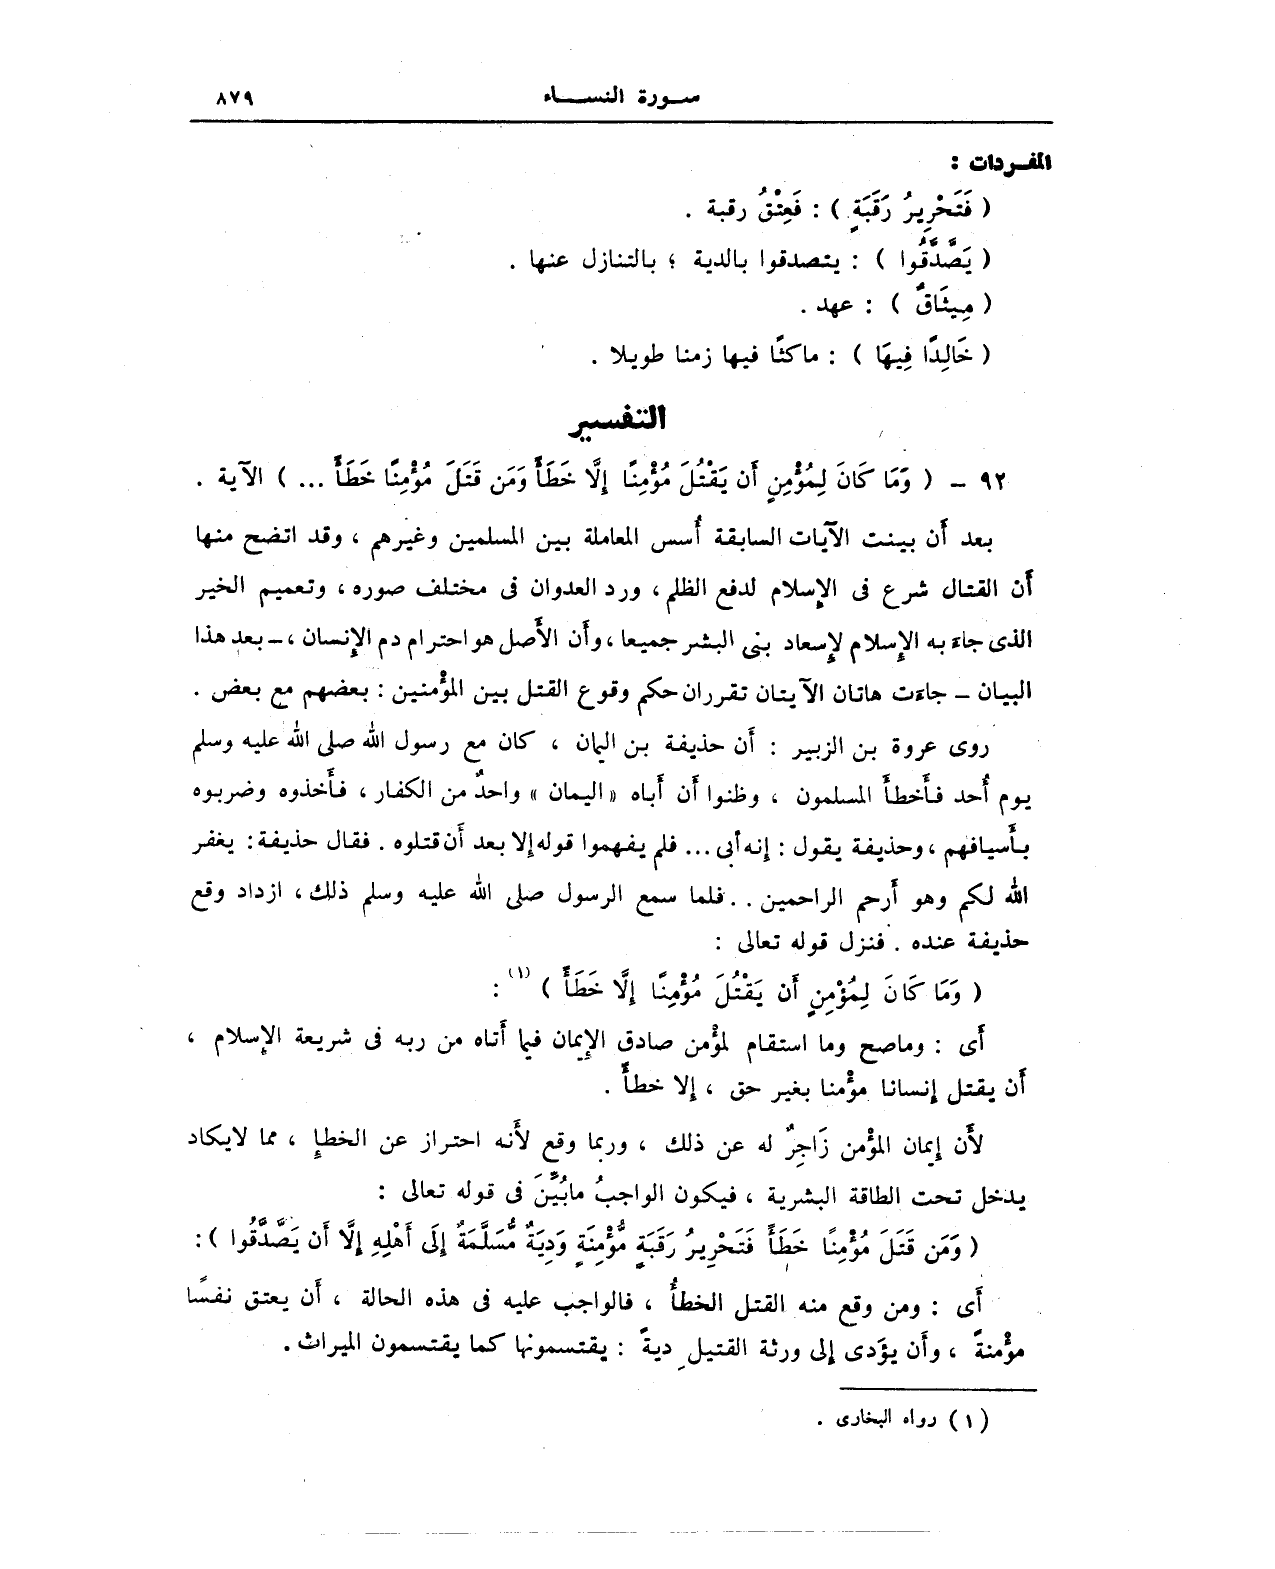 سورة النساء ٨٧٩
المفردات :
( فَتَحْرِيرُ رَقَبَةٍ ) : فَعِتْقُ رقبة .
( يَصَّدَّقُوا ) : يتصدقوا بالدية ؛ بالتنازل عنها .
( مِيثَاقٌ ) : عهد .
( خَالِدًا فِيهَا ) : ماكثًا فيها زمنا طويلا .
التفسير
٩٢ – ( وَمَا كَانَ لِمُؤْمِنٍ أَن يَقْتُلَ مُؤْمِنًا إِلَّا خَطَأً وَمَن قَتَلَ مُؤْمِنًا خَطَأً ... ) الآية .
بعد أن بينت الآيات السابقة أُسس المعاملة بين المسلمين وغيرهم ، وقد اتضح منها
أَن القتال شرع فى الإِسلام لدفع الظلم ، ورد العدوان فى مختلف صوره ، وتعميم الخير
الذى جاءَ به الإِسلام لإِسعاد بنى البشر جميعا ، وأَن الأَصل هو احترام دم الإِنسان ، – بعد هذا
البيان – جاءَت هاتان الآيتان تقرران حكم وقوع القتل بين المؤْمنين : بعضهم مع بعض .
روى عروة بن الزبير : أَن حذيفة بن اليمان ، كان مع رسول الله صلى الله عليه وسلم
يوم أُحد فأَخطأَ المسلمون ، وظنوا أَن أَباه «اليمان» واحدٌ من الكفار ، فأَخذوه وضربوه
بأَسيافهم ، وحذيفة يقول : إنه أبى ... فلم يفهموا قوله إلا بعد أَن قتلوه . فقال حذيفة : يغفر
الله لكم وهو أَرحم الراحمين . . فلما سمع الرسول صلى الله عليه وسلم ذلك ، ازداد وقع
حذيفة عنده . فنزل قوله تعالى :
( وَمَا كَانَ لِمُؤْمِنٍ أَن يَقْتُلَ مُؤْمِنًا إِلَّا خَطَأً ) (١) :
أَى : وماصح وما استقام لمؤْمن صادق الإِيمان فيما أَتاه من ربه فى شريعة الإِسلام ،
أَن يقتل إِنسانا مؤْمنا بغير حق ، إِلا خطأً .
لأَن إِيمان المؤْمن زَاجِرٌ له عن ذلك ، وربما وقع لأَنه احتراز عن الخطإِ ، مما لايكاد
يدخل تحت الطاقة البشرية ، فيكون الواجبُ مابُيِّنَ فى قوله تعالى :
( وَمَن قَتَلَ مُؤْمِنًا خَطَأً فَتَحْرِيرُ رَقَبَةٍ مُّؤْمِنَةٍ وَدِيَةٌ مُّسَلَّمَةٌ إِلَى أَهْلِهِ إِلَّا أَن يَصَّدَّقُوا ) :
أَى : ومن وقع منه القتل الخطأُ ، فالواجب عليه فى هذه الحالة ، أَن يعتق نفسًا
مؤْمنةً ، وأَن يؤَدى إِلى ورثة القتيل دِيةً : يقتسمونها كما يقتسمون الميراث .
(١) رواه البخارى .